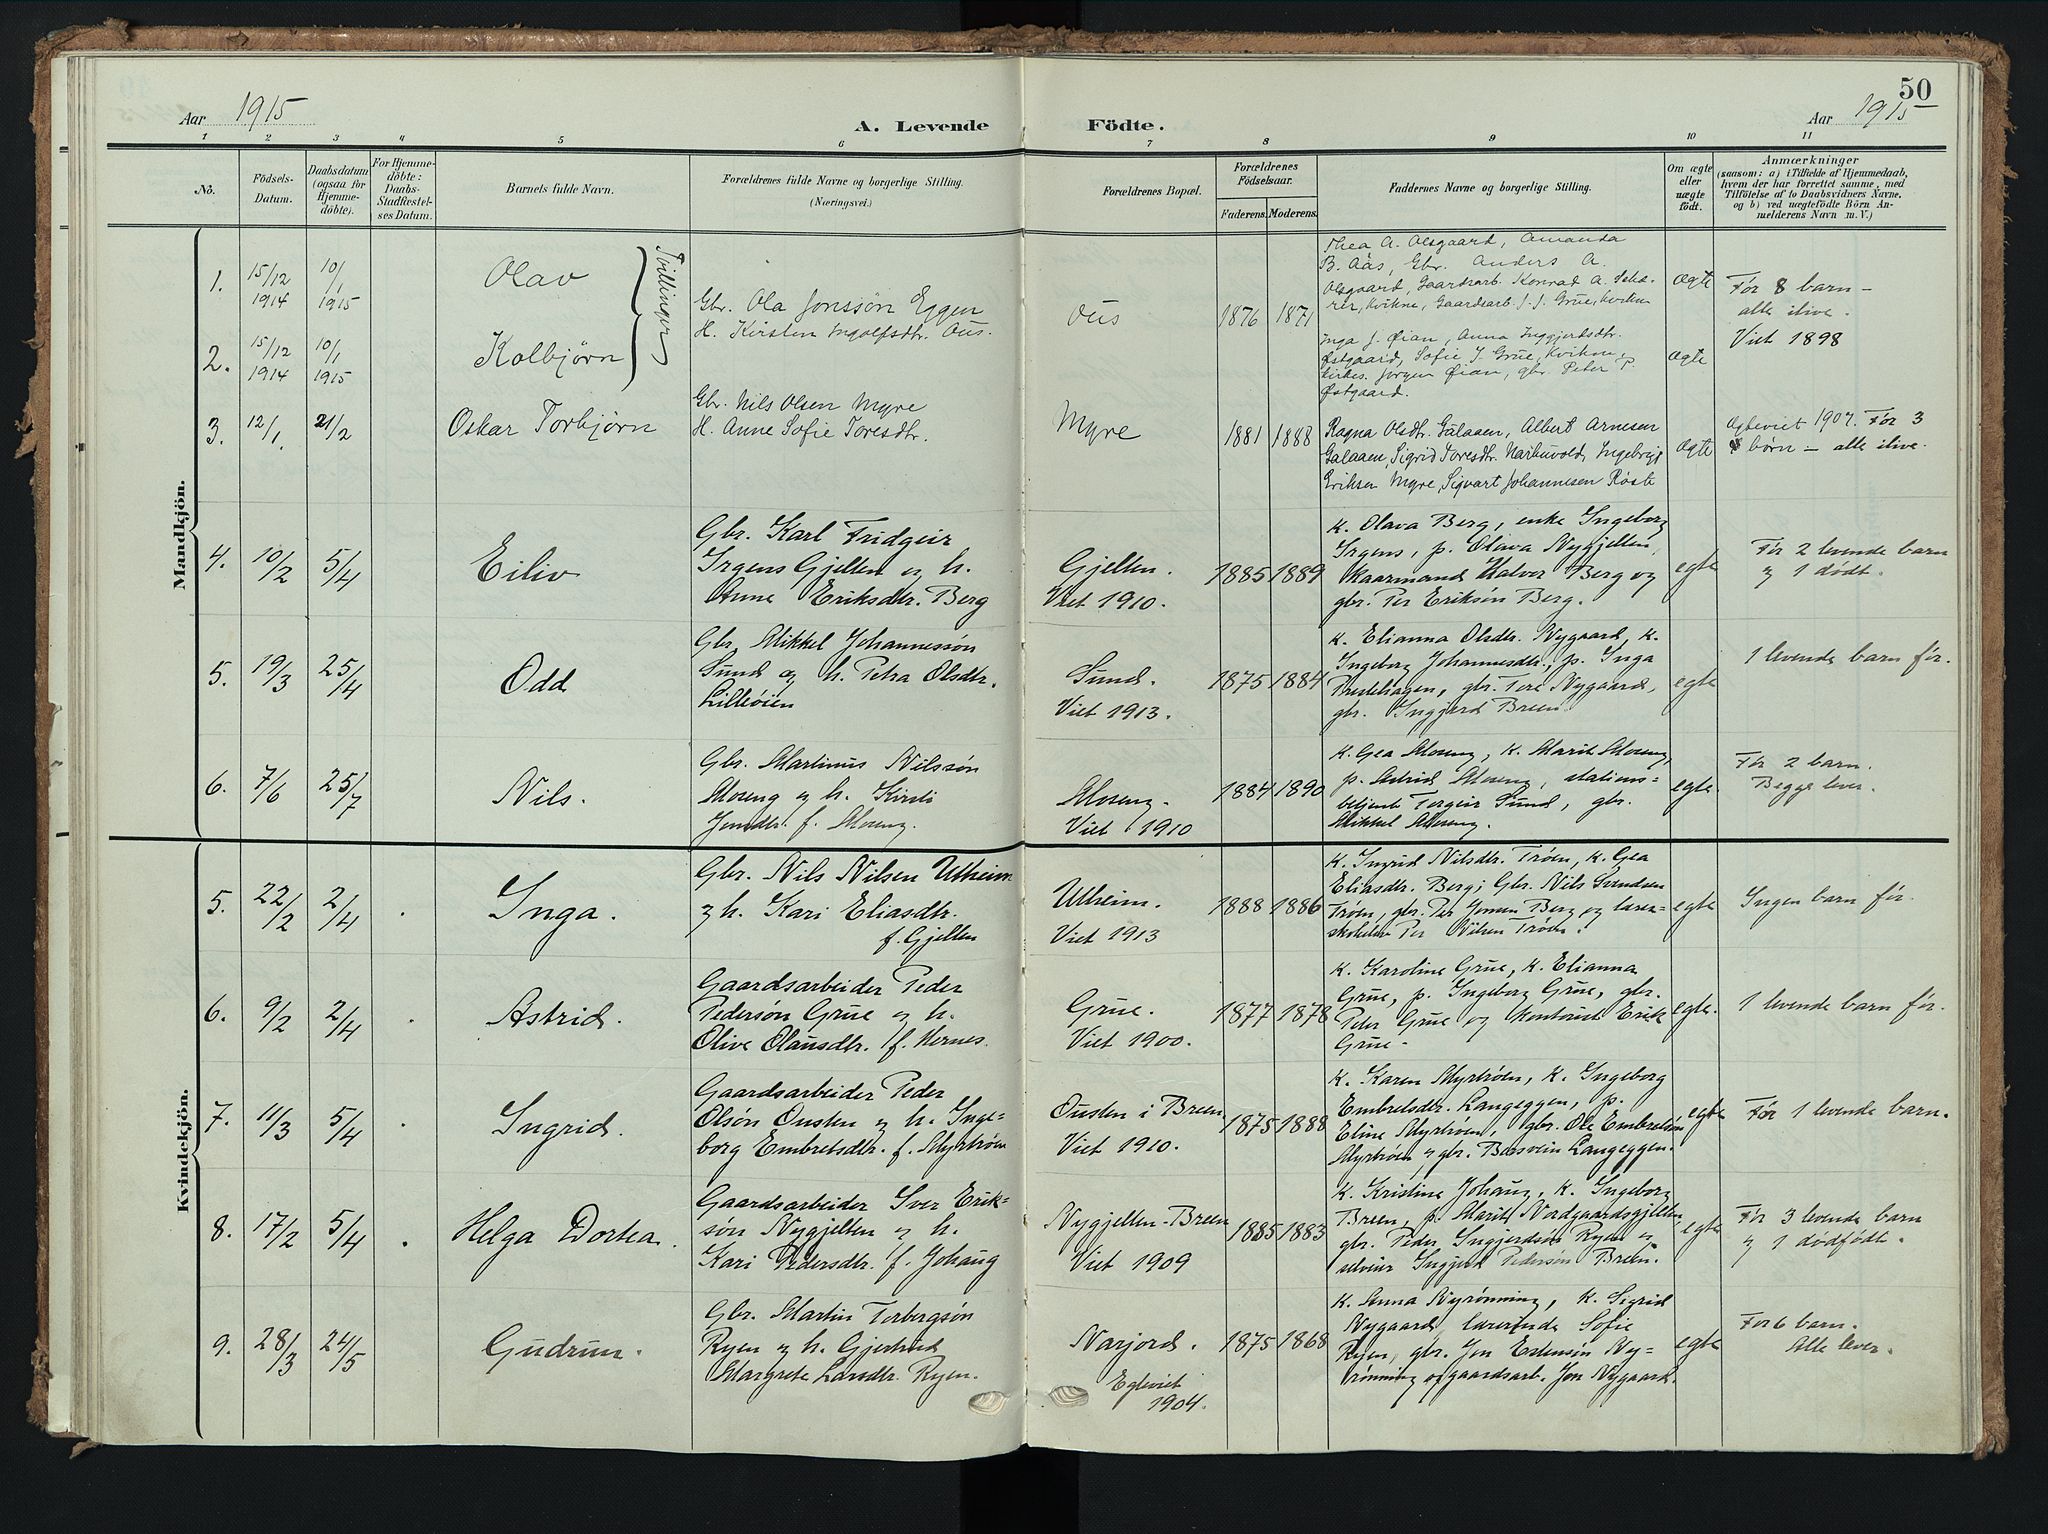 50
Aar 1915
A. Levende Födte.
Aar 1915
1 2 3 4 5 6 7 8 9 10 11
No.
Födsels-Datum.
Daabsdatum (ogsaa for Hjemme-döbte).
For Hjemme-döbte: Daabs-Stadfæstel-ses Datum.
Barnets fulde Navn.
Forældrenes fulde Navne og borgerlige Stilling.
(Næringsvei.)
Forældrenes Bopæl.
Forældrenes Födselsaar.
Faderens. Moderens.
Faddernes Navne og borgerlige Stilling.
Om ægte eller uægte födt.
Anmærkninger
(saasom: a) i Tilfælde af Hjemmedaab,
hvem der har forrettet samme, med
Tilföielse af to Daabsvidners Navne.
og b) ved uægtefödte Börn An-
melderens Navn m. V.)
Mandkjön.
1. 15/12 1914 10/1 1915 Olav
Tvillinger
Gbr. Ola Jonssön Eggen
H. Kirsten Ingolfsdtr. Ous.
Ous 1876 1871
Thea A. Olsgaard, Amanda
B. Aås, Gbr. Anders A.
Olsgaard, Gaardsarb. Konrad A.
Kvikne, Gaardsarb. J. J. Grue, Kvikne
ægte
Før 8 barn —
alle ilive.
Viet 1898
2. 15/12 1914 10/1 1915 Kolbjørn
Inga J. Øian, Anna Inggjerdsdtr.
Østgaard, Sofie J. Grue, Kvikne,
Jørgen Øian, gbr. Peter P.
Østgaard.
ægte
3. 12/1. 21/2 Oskar Torbjørn
Gbr. Nils Olsen Myre
H. Anne Sofie Toresdtr.
Myre 1881 1888
Ragna Olsdtr. Galaaen, Albert Arnesen
Galaaen, Sigrid Toresdtr. Narbuvold, Ingebrigt
Eriksen Myre, Sigvart Johannesen Röste
ægte
Ægteviet 1907. Før 3
børn — alle ilive.
4. 10/2 5/4 Eiliv
Gbr. Karl Fridgeir
Irgens Gjelten og h.
Anne Eriksdtr. Berg
Gjelten.
Viet 1910.
1885 1889
K. Olava Berg, enke Ingeborg
Irgens, p. Oliva Nygjelten,
skaarmand Halvor Berg og
gbr. Per Eriksön Berg.
egte
Før 2 levende barn
og 1 dødt.
5. 19/3 25/4 Odd
Gbr. Mikkel Johannessön
Sund og h. Petra Olsdtr.
Lilleöien
Sund.
Viet 1913.
1875 1884
K. Elianna Olsdtr. Nygaard, K.
Ingeborg Johannesdtr., p. Inga
Prestehagen, gbr. Tore Nygaard,
gbr. Ingjard Breen.
egte
1 levende barn før.
6. 7/6 25/7 Nils.
Gbr. Martinus Nilssön
Moseng og h. Kirsti
Jonsdtr. f. Moseng.
Moseng.
Viet 1910
1884 1890
K. Gea Moseng, K. Marit Moseng,
p. Astrid Moseng, stations=
betjent Torgeir Sund, gbr.
Mikkel Moseng.
egte.
Før 2 barn.
Begge lever.
Kvindekjön.
5. 22/2 2/4 Inga.
Gbr. Nils Nilsen Utheim
og h. Kari Eliasdtr.
f. Gjelten
Utheim.
Viet 1913
1888 1886
K. Ingrid Nilsdtr. Tröen, K. Gea
Eliasdtr. Berg; Gbr. Nils Svendsen
Tröen, gbr. Per Jonsen Berg og lærer=
skoleelev Per Nilsen Tröen.
egte
Ingen barn før.
6. 9/2 2/4 Astrid.
Gaardsarbeider Peder
Pedersön Grue og h.
Olive Olausdtr. f. Hernes.
Grue.
Viet 1900.
1877 1878
K. Karoline Grue, K. Elianna
Grue, p. Ingeborg Grue, gbr.
Peter Grue og Kontorist Erik
Grue.
egte.
1 levende barn før.
7. 11/3 5/4 Ingrid.
Gaardsarbeider Peder
Olsön Ousten og h. Inge=
borg Embretsdtr. f. Myrtröen
Ousten i Breen
Viet 1910.
1875 1888
K. Karen Myrtröen, K. Ingeborg
Embretsdtr. Langeggen, p.
Eline Myrtröen, gbr. Ole Embretsön
Myrtröen og gbr. Barsvein Langeggen.
egte
Før 1 levende barn.
8. 17/2 5/4 Helga Dortea.
Gaardsarbeider Iver Erik=
sön Nygjelten og h.
Kari Pedersdtr. f. Johaug
Nygjelten-Breen
Viet 1909
1885 1883
K. Kristine Johaug, K. Ingeborg
Breen, p. Marit Nordgaardsgjelten,
gbr. Peder Ingjerdsen Ryen og
selveier Ingjerd Pedersön Breen.
egte
Før 3 levende barn
og 1 dødfødt.
9. 28/3 24/5 Gudrun.
Gbr. Martin Torbergsön
Ryen og h. Gjertrud
Margrete Larsdtr. Ryen.
Narjord.
Egteviet
1904.
1875 1868
K. Anna Nyrönning, K. Sigrid
Nygaard, lærerinde Sofie
Ryen, gbr. Jon Estensön Ny=
rönning og gaardsarb. Jon Nygaard.
egte
Før 6 barn.
Alle lever.